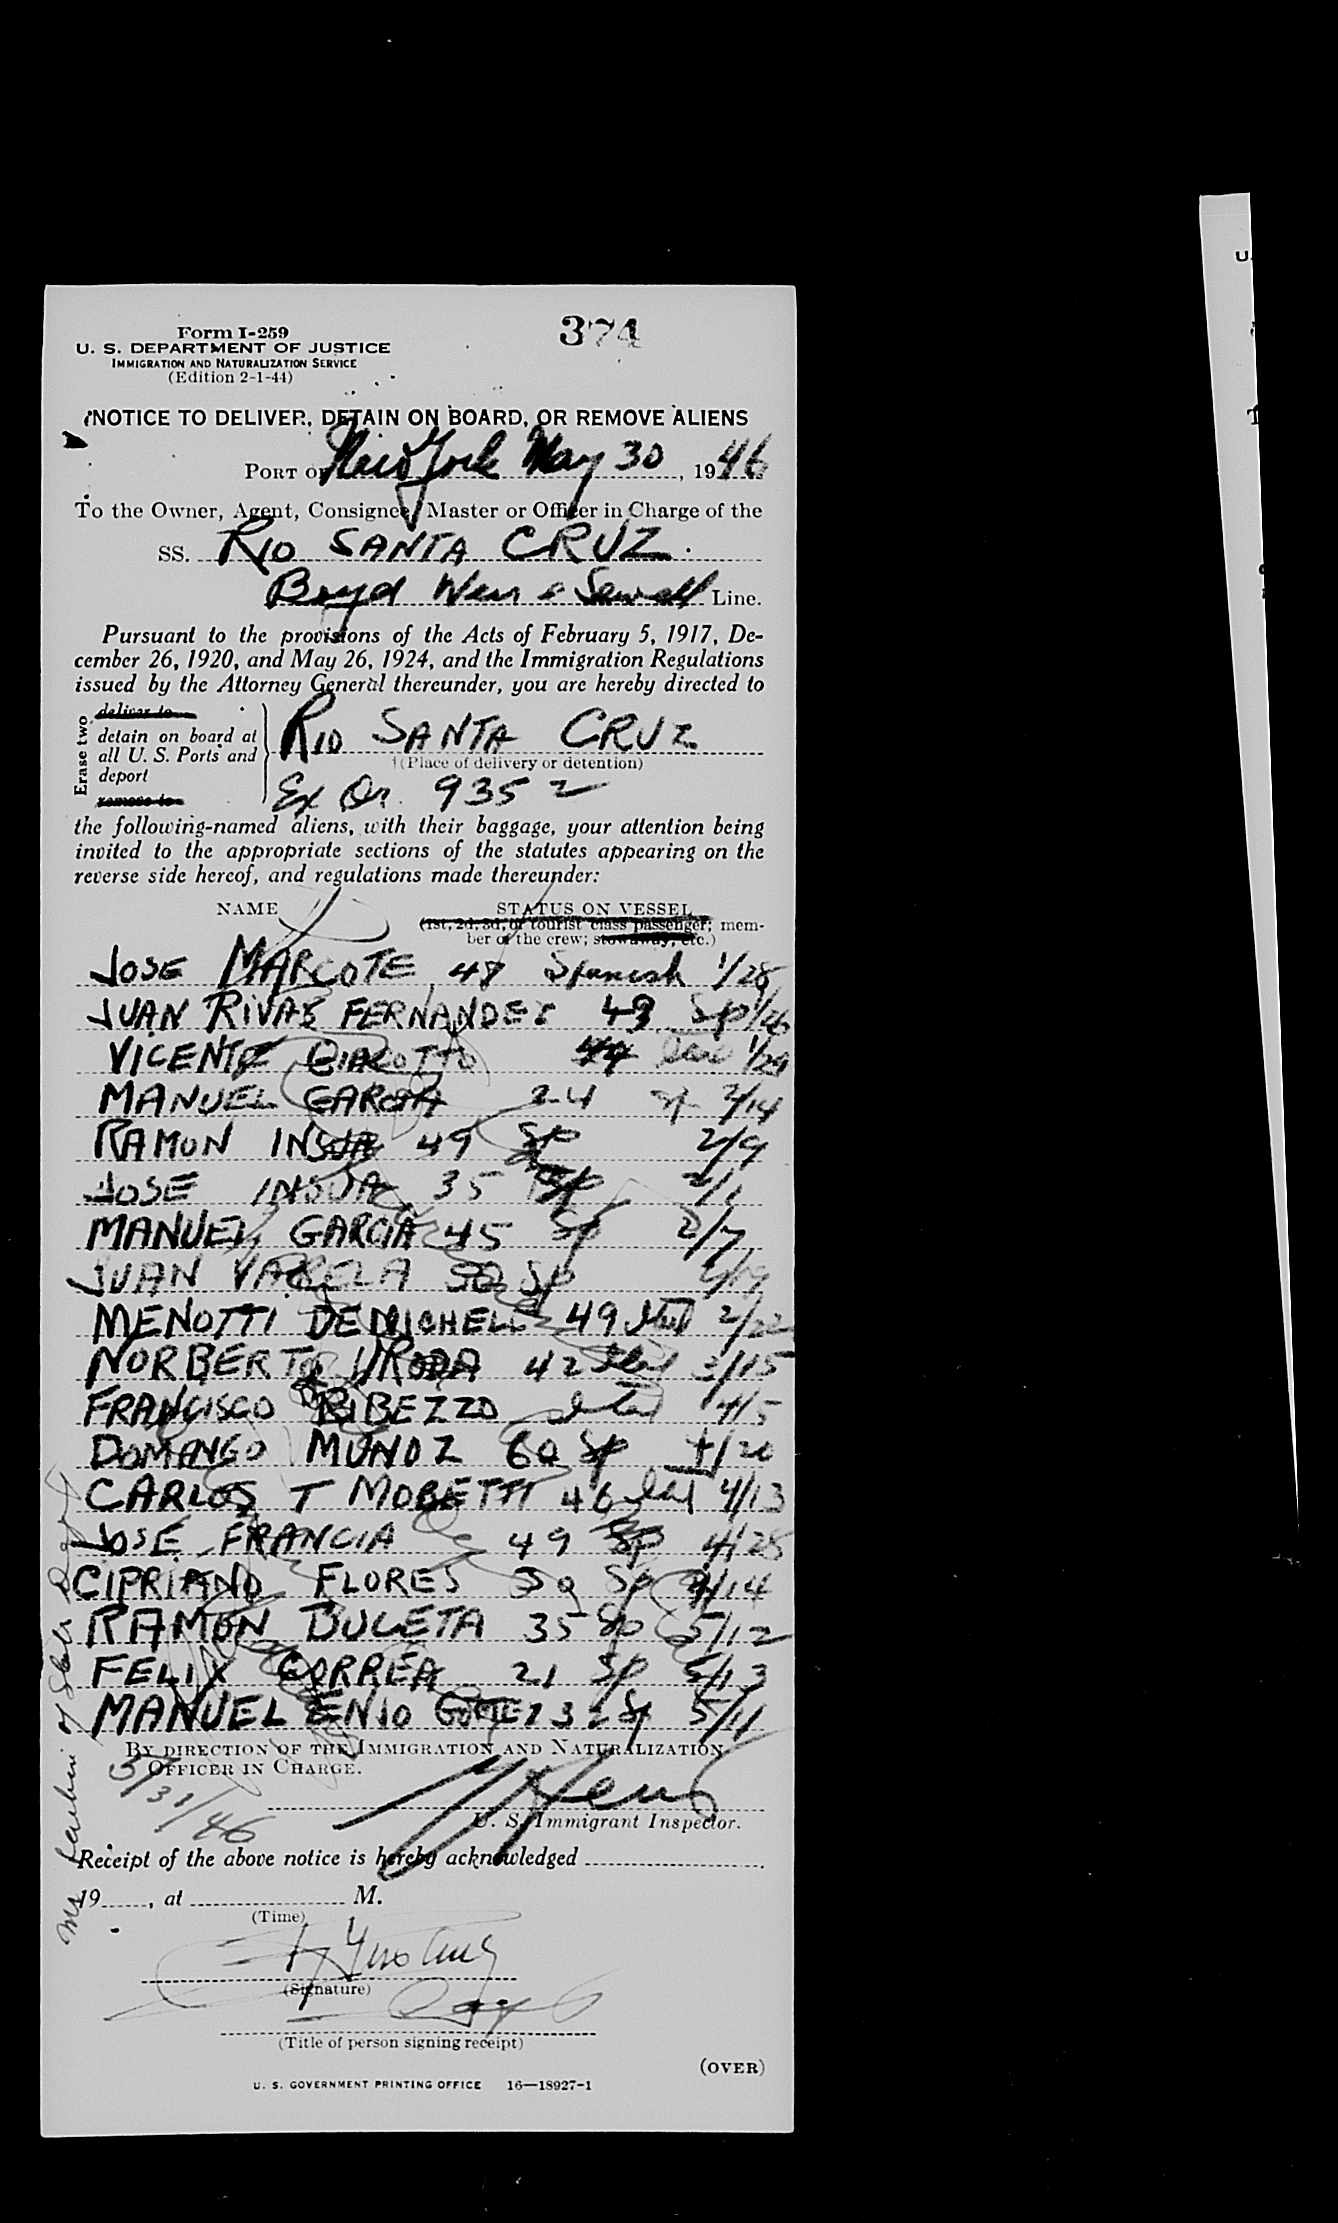 Form I-259
374
U. S. DEPARTMENT OF JUSTICE
IMMIGRATION AND NATURALIZATION SERVICE
(Edition 2-1-44)
NOTICE TO DELIVER, DETAIN ON BOARD, OR REMOVE ALIENS
PORT OF New York May 30, 1946
To the Owner, Agent, Consignee, Master or Officer in Charge of the
SS. RIO SANTA CRUZ
Boyd Weir & Sewell Line.
Pursuant to the provisions of the Acts of February 5, 1917, De-
cember 26, 1920, and May 26, 1924, and the Immigration Regulations
issued by the Attorney General thereunder, you are hereby directed to
Erase two
deliver to
detain on board at
all U. S. Ports and
deport
remove to
RIO SANTA CRUZ
(Place of delivery or detention)
Ex Or. 9352
the following-named aliens, with their baggage, your attention being
invited to the appropriate sections of the statutes appearing on the
reverse side hereof, and regulations made thereunder:
NAME
STATUS ON VESSEL
(1st, 2d, 3d, or tourist class passenger; mem-
ber of the crew; stowaway, etc.)
JOSE MARCOTE 47 Spanish 1/28
JUAN RIVAS FERNANDEZ 49 Sp 1/26
VICENTE 44 1/29
MANUEL GARCIA 24 Sp 2/14
RAMON INSUA 49 Sp 2/9
JOSE INSUA 35 Sp 2/1
MANUEL GARCIA 45 Sp 2/7
JUAN VARELA Sp
MENOTTI DEMICHELI 49 Ital 2/22
NORBERTO URODA 42 Ital 3/15
FRANCISCO RIBEZZO Ital 4/5
DOMANGO MUNOZ 60 Sp 4/20
CARLOS T MOBETTI 46 Ital 4/13
JOSE FRANCIA 49 Sp 4/28
CIPRIANO FLORES 50 Sp 4/14
RAMON BULETA 35 Sp 5/12
FELIX CORREA 21 Sp 5/13
MANUEL ENIO Sp 5/11
BY DIRECTION OF THE IMMIGRATION AND NATURALIZATION
OFFICER IN CHARGE.
5/31/46
U. S. Immigrant Inspector.
Receipt of the above notice is hereby acknowledged
19, at M.
(Time)
(Signature)
(Title of person signing receipt)
(OVER)
U. S. GOVERNMENT PRINTING OFFICE 16—18927-1